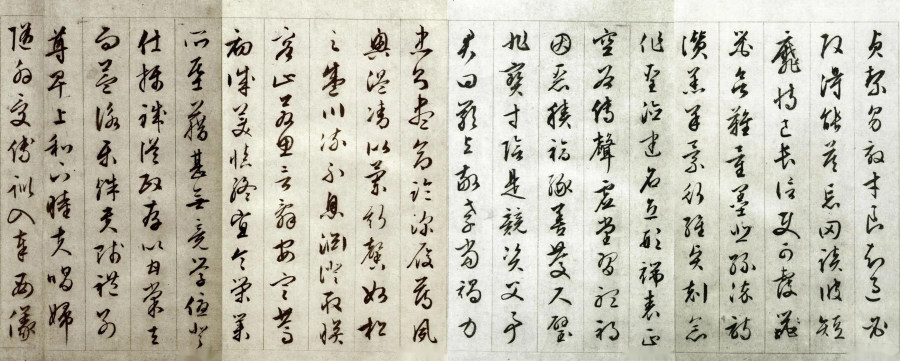 貞絜男效才良知過必
改得能莫忘罔談彼短
靡恃己長信使可覆器
欲難量墨悲絲染詩
讚羔羊景行維賢剋念
作聖德建名立形端表正
空谷傳聲虛堂習聽禍
因惡積福緣善慶尺璧
非寶寸陰是競資父事
君曰嚴與敬孝當竭力
忠則盡命臨深履薄夙
興溫凊似蘭斯馨如松
之盛川流不息淵澄取暎
容止若思言辭安定篤
初誠美慎終宜令榮業
所基籍甚無竟學優登
仕攝職從政存以甘棠去
而益詠樂殊貴賤禮別
尊卑上和下睦夫唱婦
隨外受傅訓入奉母儀